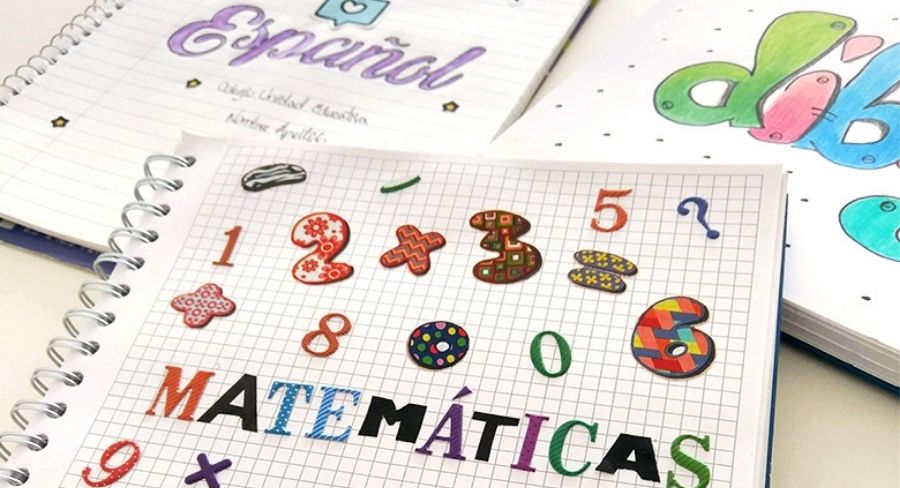 Español
Colegio Unidad Educativa
Nombre Apellido
dib
5 ?
1 2 × 3 = 6
+ 8 0
MATEMÁTICAS
9 ×